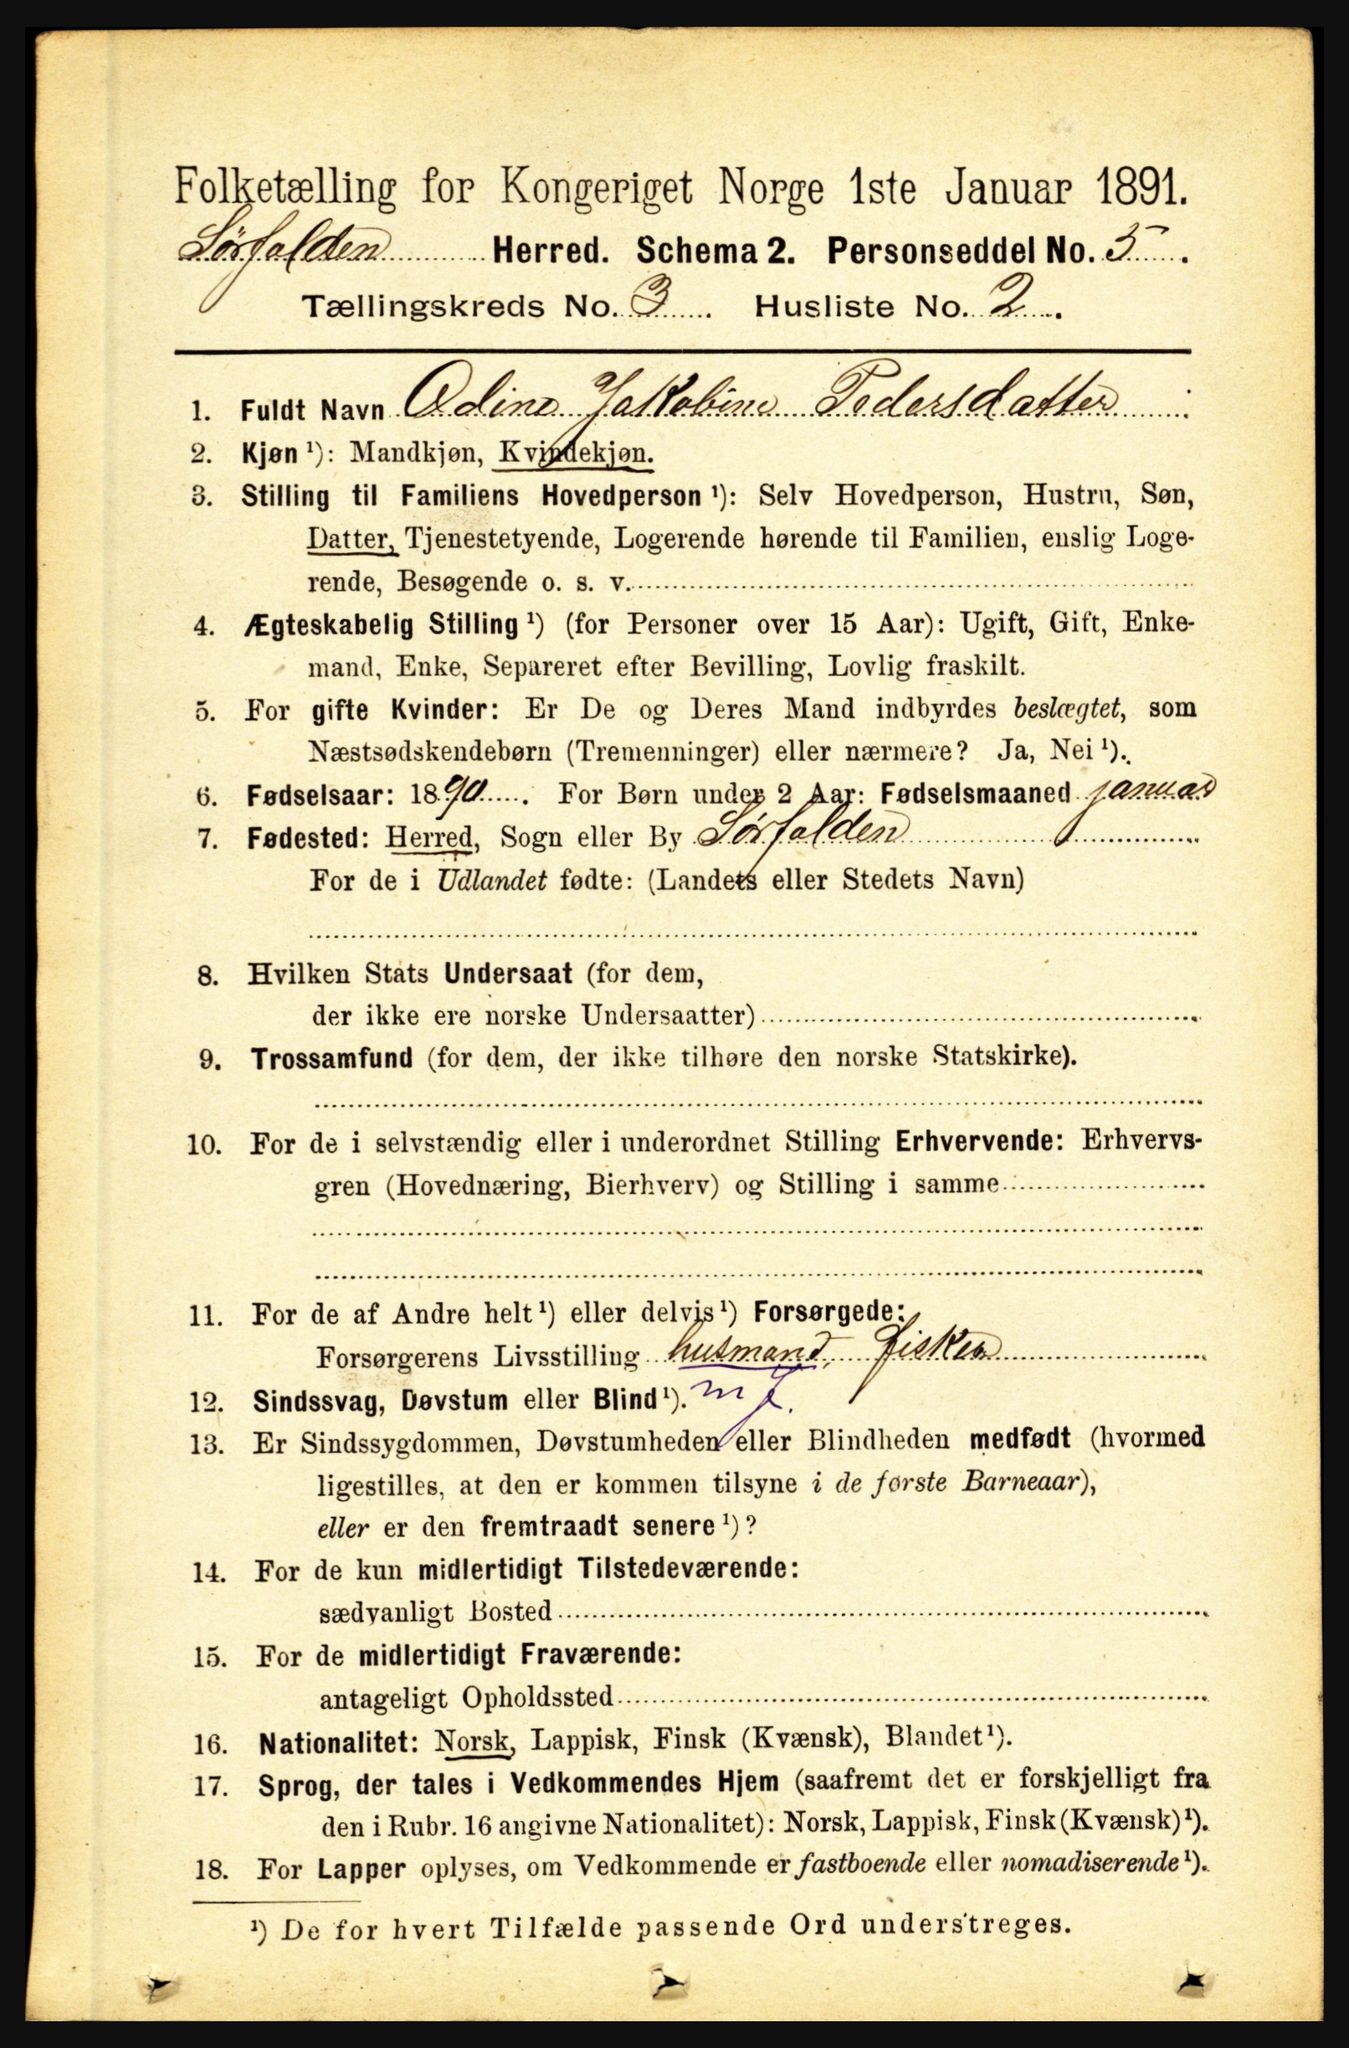 Folketælling for Kongeriget Norge 1ste Januar 1891.
Sørfolden Herred. Schema 2. Personseddel No. 5.
Tællingskreds No. 3. Husliste No. 2.
1. Fuldt Navn Odine Jakobine Pedersdatter
2. Kjøn ¹): Mandkjøn, Kvindekjøn.
3. Stilling til Familiens Hovedperson ¹): Selv Hovedperson, Hustru, Søn,
Datter, Tjenestetyende, Logerende hørende til Familien, enslig Loge-
rende, Besøgende o. s. v.
4. Ægteskabelig Stilling ¹) (for Personer over 15 Aar): Ugift, Gift, Enke-
mand, Enke, Separeret efter Bevilling, Lovlig fraskilt.
5. For gifte Kvinder: Er De og Deres Mand indbyrdes beslægtet, som
Næstsødskendebørn (Tremenninger) eller nærmere? Ja, Nei ¹).
6. Fødselsaar: 1890. For Børn under 2 Aar: Fødselsmaaned januar
7. Fødested: Herred, Sogn eller By Sørfolden
For de i Udlandet fødte: (Landets eller Stedets Navn)
8. Hvilken Stats Undersaat (for dem,
der ikke ere norske Undersaatter)
9. Trossamfund (for dem, der ikke tilhøre den norske Statskirke).
10. For de i selvstændig eller i underordnet Stilling Erhvervende: Erhvervs-
gren (Hovednæring, Bierhverv) og Stilling i samme
11. For de af Andre helt ¹) eller delvis ¹) Forsørgede:
Forsørgerens Livsstilling husmand, fisker
12. Sindssvag, Døvstum eller Blind ¹). m J.
13. Er Sindssygdommen, Døvstumheden eller Blindheden medfødt (hvormed
ligestilles, at den er kommen tilsyne i de første Barneaar),
eller er den fremtraadt senere ¹)?
14. For de kun midlertidigt Tilstedeværende:
sædvanligt Bosted
15. For de midlertidigt Fraværende:
antageligt Opholdssted
16. Nationalitet: Norsk, Lappisk, Finsk (Kvænsk), Blandet ¹).
17. Sprog, der tales i Vedkommendes Hjem (saafremt det er forskjelligt fra
den i Rubr. 16 angivne Nationalitet): Norsk, Lappisk, Finsk (Kvænsk) ¹).
18. For Lapper oplyses, om Vedkommende er fastboende eller nomadiserende ¹).
¹) De for hvert Tilfælde passende Ord understreges.